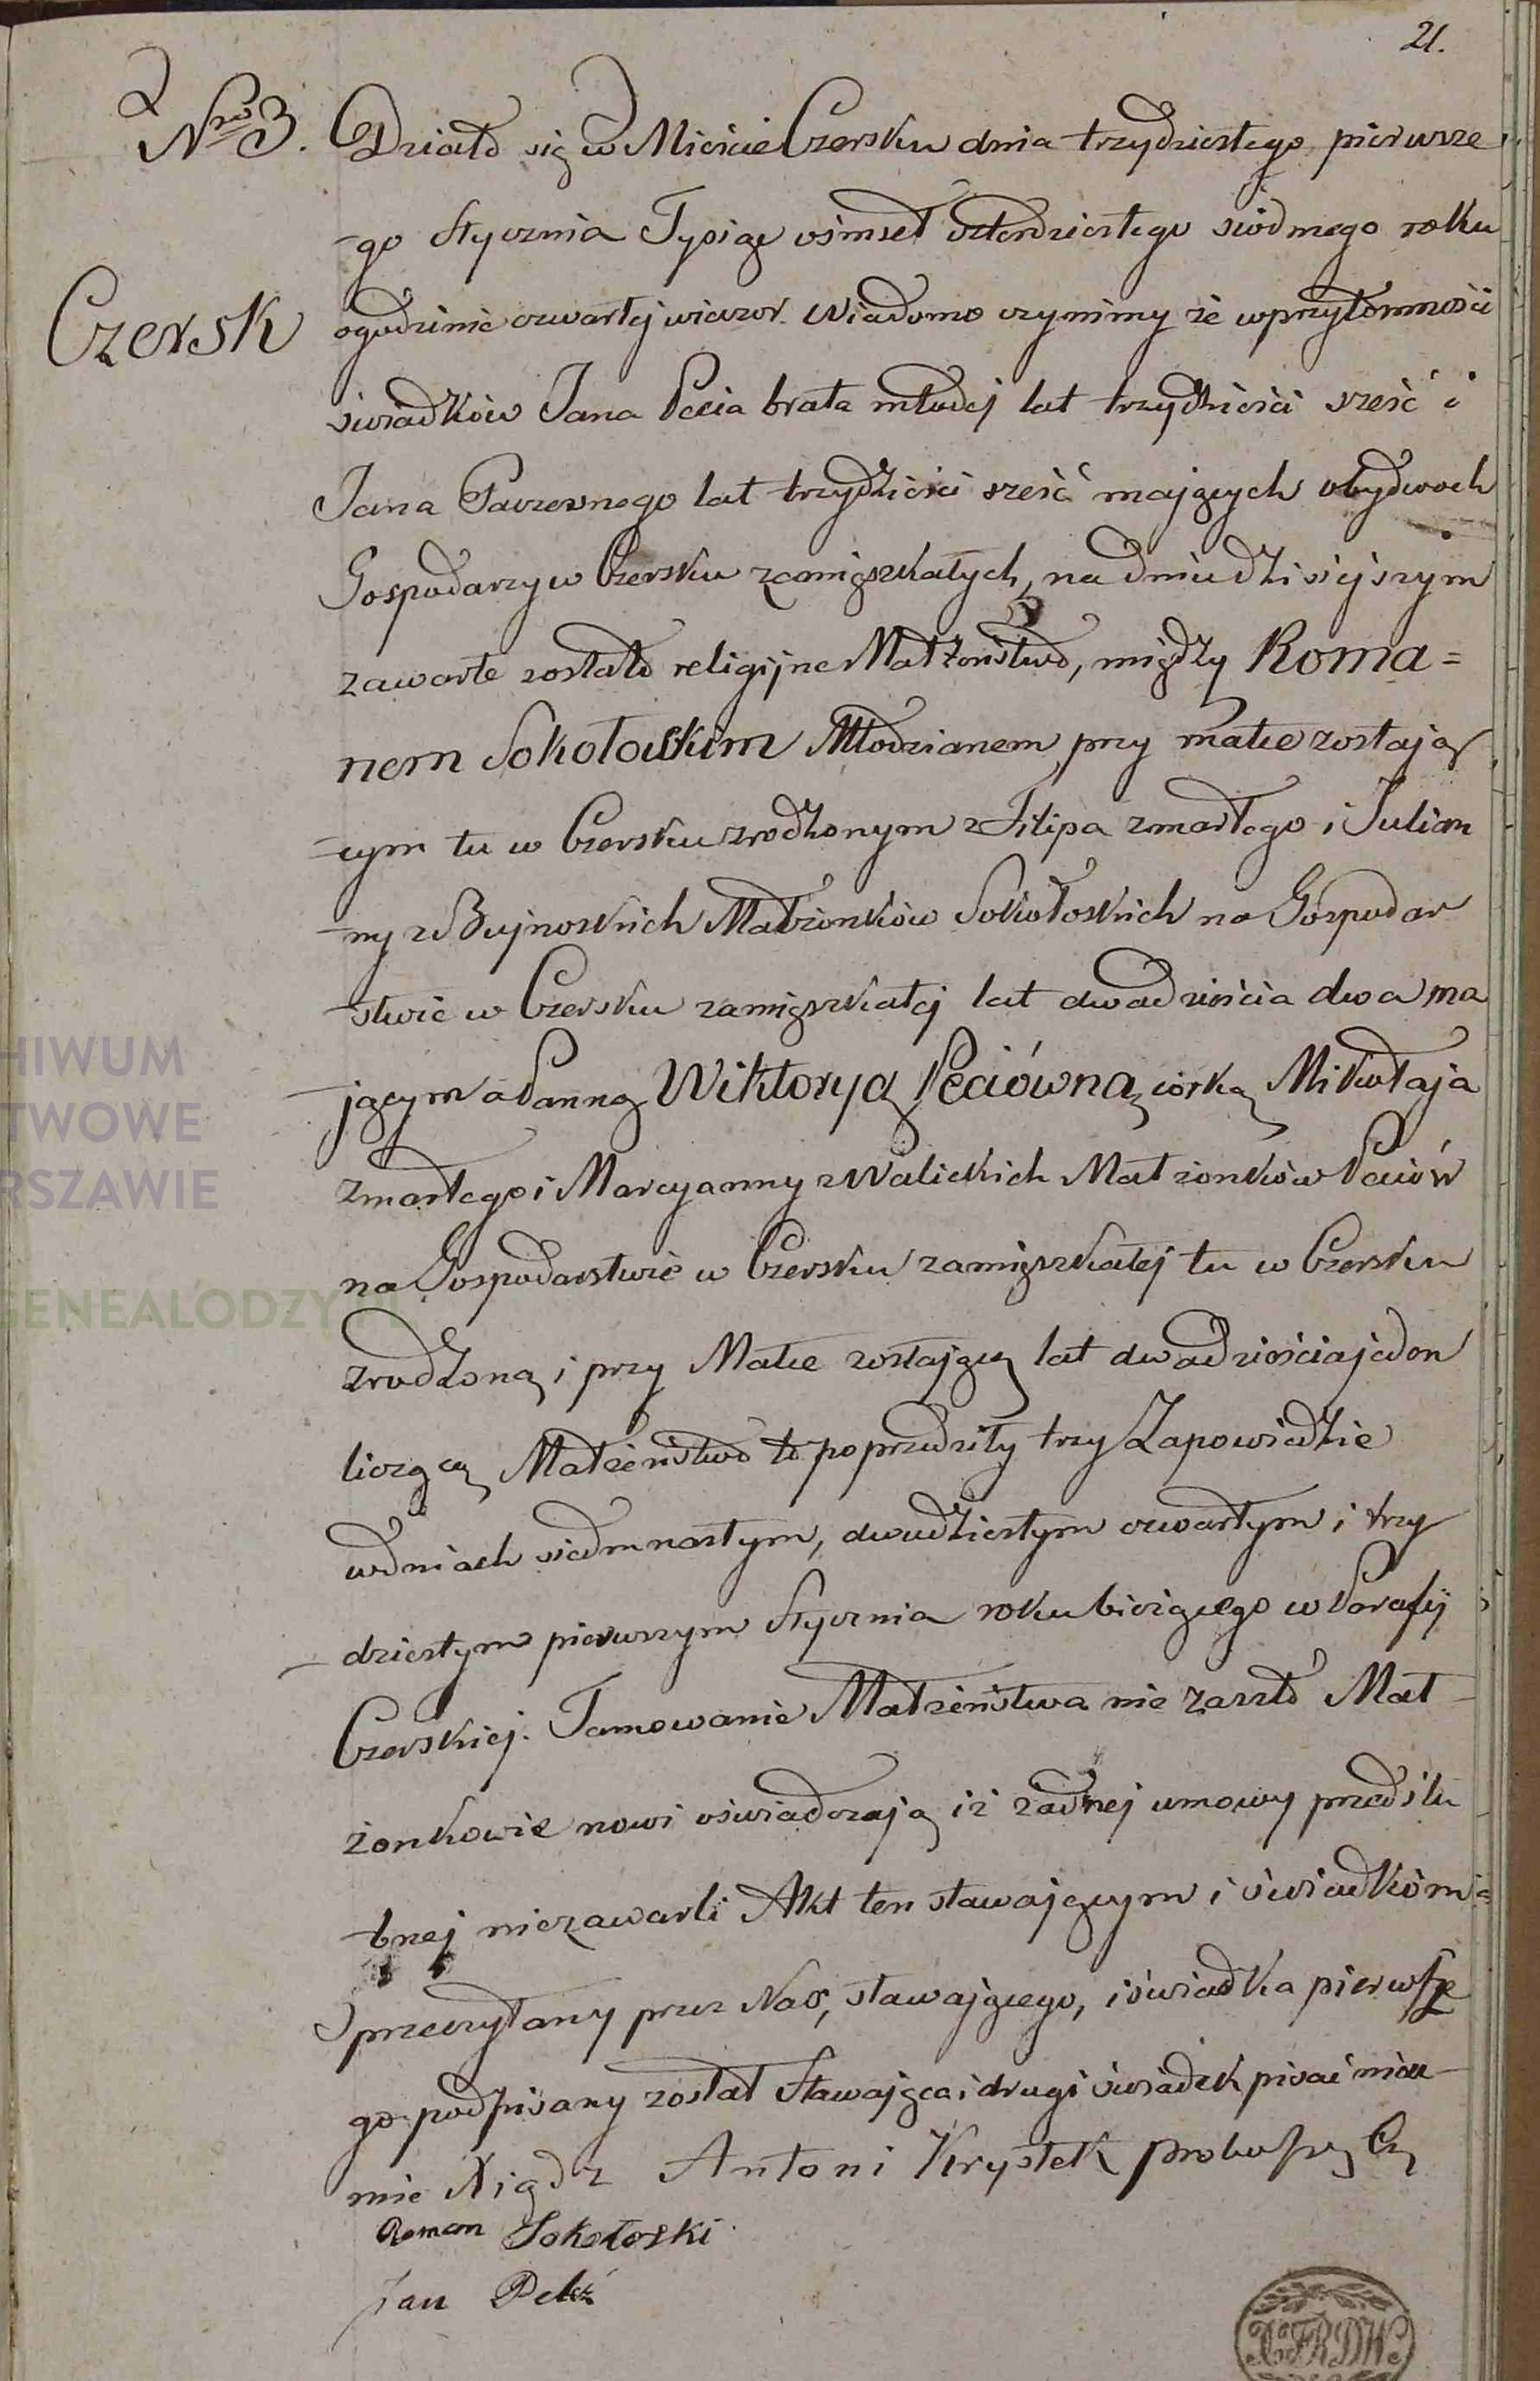 21.
Nro 3.
Czersk
Działo się w Mieście Czersku dnia trzydziestego pierwsze
-go Stycznia Tysiąc ośmset czterdziestego siódmego roku
ogodzinie czwartej wieczor. Wiadomo czynimy że wprzytomności
świadków Jana Pecia brata młodej lat trzydzieści sześć i
Jana lat trzydzieści sześć mających obydwoch
Gospodarzy w Czersku zamięszkałych, na dniu dzisiejszym
zawarte zostało religijne Małżeństwo, między Roma=
nem Sokołowskim Młodzianem przy matce zostają
-cym tu w Czersku zrodzonym z Filipa zmarłego i Julian
-ny z Bujnoskich Małżonków Sokołoskich na Gospodar
-stwie w Czersku zamięszkałej lat dwadzieścia dwa ma
-jącym a Panną Wiktoryą Peciówną córką Mikołaja
zmarłego i Marcyanny z Walickich Małżonków Peciów
na Gospodarstwie w Czersku zamięszkałej tu w Czersku
zrodzoną i przy Matce zostającą lat dwadzieściajeden
liczącą Małżeństwo to poprzedziły trzy Zapowiedzie
wdniach siedmnastym, dwudziestym czwartym i trzy
- dziestym pierwszym Stycznia roku bieżącego w Parafij
Czerskiej. Tamowanie Małżeństwa nie zaszło Mał-
żonkowie nowi oświadczają iż żadnej umowy przedślu
-bnej niezawarli Akt ten stawającym i świadkóm
przeczytany przez Nas, stawającego, i świadka pierwsze
go podpisany został Stawająca i drugi świadek pisać nieu-
mie Xiądz Antoni Krystek proboszcz Cz
Roman Sokołoski.
Jan
HIWUM
TWOWE
RSZAWIE
GENEALODZY